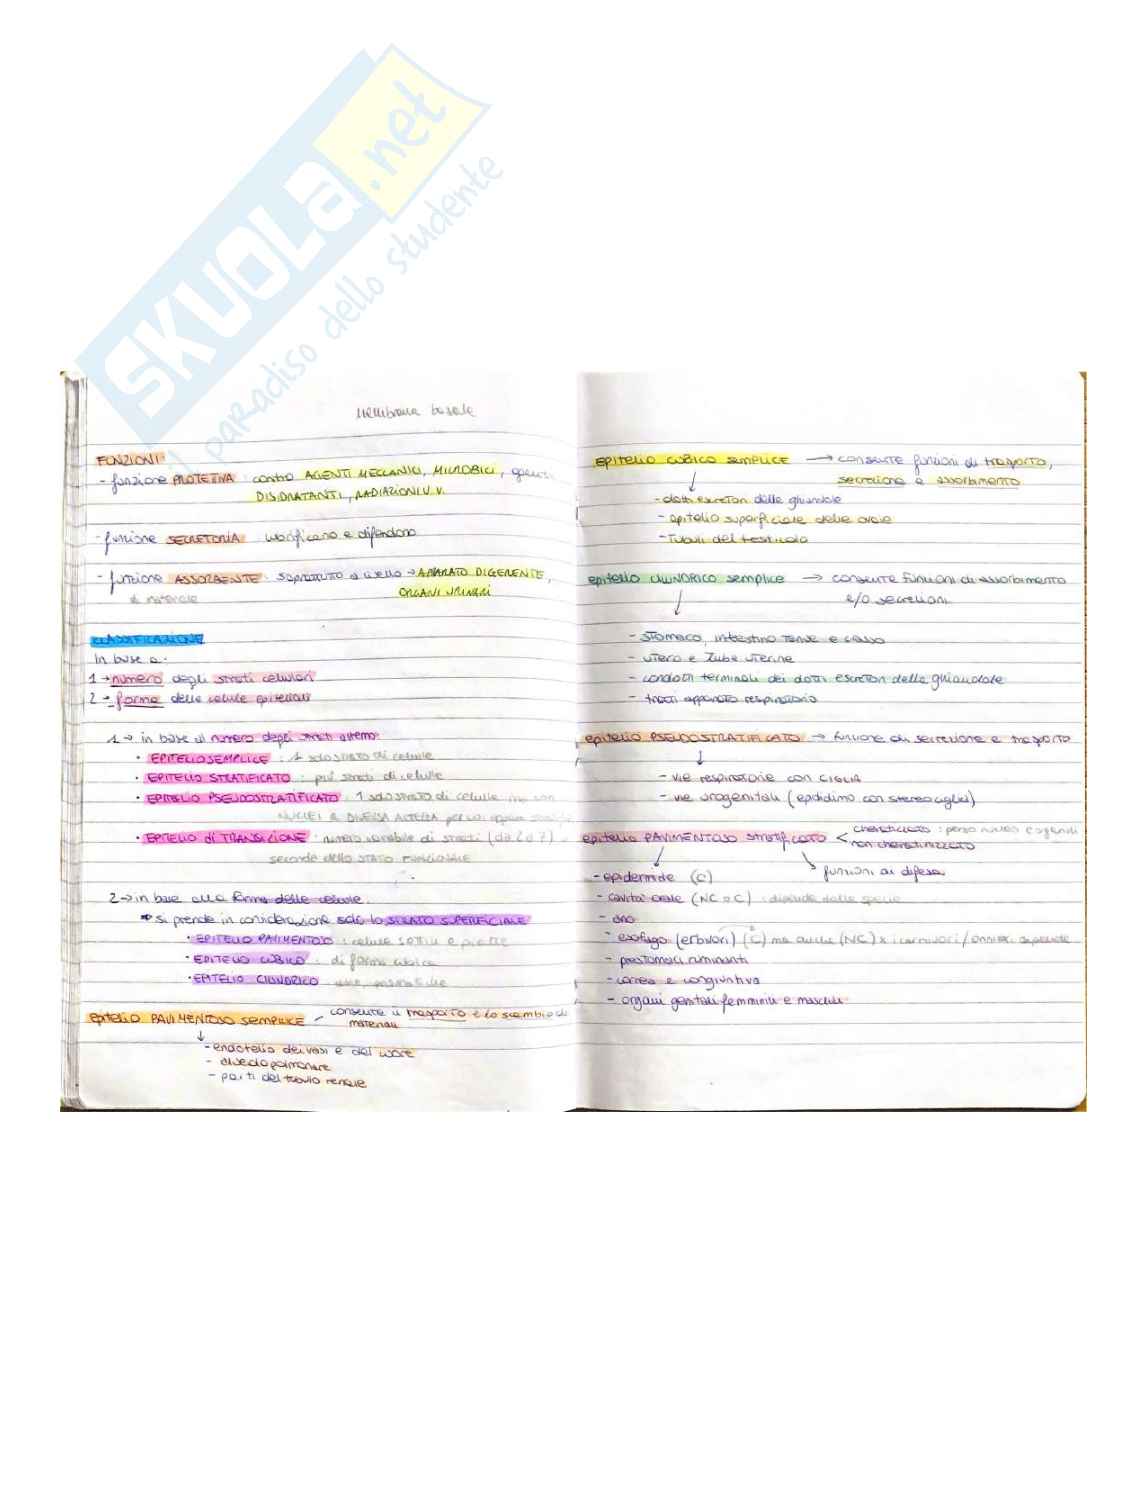 SKUOLA.net
il paradiso dello studente
Membrana basale
FUNZIONI:
- funzione PROTETTIVA: contro AGENTI MECCANICI, MICROBICI, agenti
DISIDRATANTI, RADIAZIONI U.V.
- funzione SECRETORIA lubrificano e difendono
- funzione ASSORBENTE: soprattutto a livello → APPARATO DIGERENTE,
di materiale ORGANI URINARI
CLASSIFICAZIONE
In base a:
1 → numero degli strati cellulari
2 → forma delle cellule epiteliali
1 → in base al numero degli strati avremo:
• EPITELIO SEMPLICE: 1 solo strato di cellule
• EPITELIO STRATIFICATO: più strati di cellule
• EPITELIO PSEUDOSTRATIFICATO: 1 solo strato di cellule ma con
NUCLEI A DIVERSA ALTEZZA per cui appare
• EPITELIO di TRANSIZIONE: numero variabile di strati (da 2 a 7)
seconda dello STATO FUNZIONALE
2 → in base alla forma delle cellule:
⇒ si prende in considerazione solo lo STRATO SUPERFICIALE
• EPITELIO PAVIMENTOSO: cellule sottili e piatte
• EPITELIO CUBICO: di forma cubica
• EPITELIO CILINDRICO prismatiche
epitelio PAVIMENTOSO SEMPLICE consente il trasporto e lo scambio di
materiali
↓
- endotelio dei vasi e del cuore
- alveolo polmonare
- parti del tubulo renale
epitelio CUBICO SEMPLICE → consente funzioni di trasporto,
secrezione e assorbimento
↓
- dotti escretori delle ghiandole
- epitelio superficiale delle ovaie
- Tubuli del testicolo
epitelio CILINDRICO semplice → consente funzioni di assorbimento
e/o secrezioni
↓
- stomaco, intestino tenue e crasso
- utero e tube uterine
- condotti terminali dei dotti escretori delle ghiandole
- tratti apparato respiratorio
epitelio PSEUDOSTRATIFICATO → funzione di secrezione e trasporto
↓
- vie respiratorie con CIGLIA
- vie urogenitali (epididimo con stereociglia)
epitelio PAVIMENTOSO stratificato < cheratinizzato: perso nucleo e organuli
non cheratinizzato
↓ ↘ funzioni di difesa
- epidermide (C)
- cavità orale (NC o C): dipende dalla specie
- ano
- esofago (erbivori) (C) ma anche (NC) x i carnivori/onnivori
- prestomaci ruminanti
- cornea e congiuntiva
- organi genitali femminili e maschili